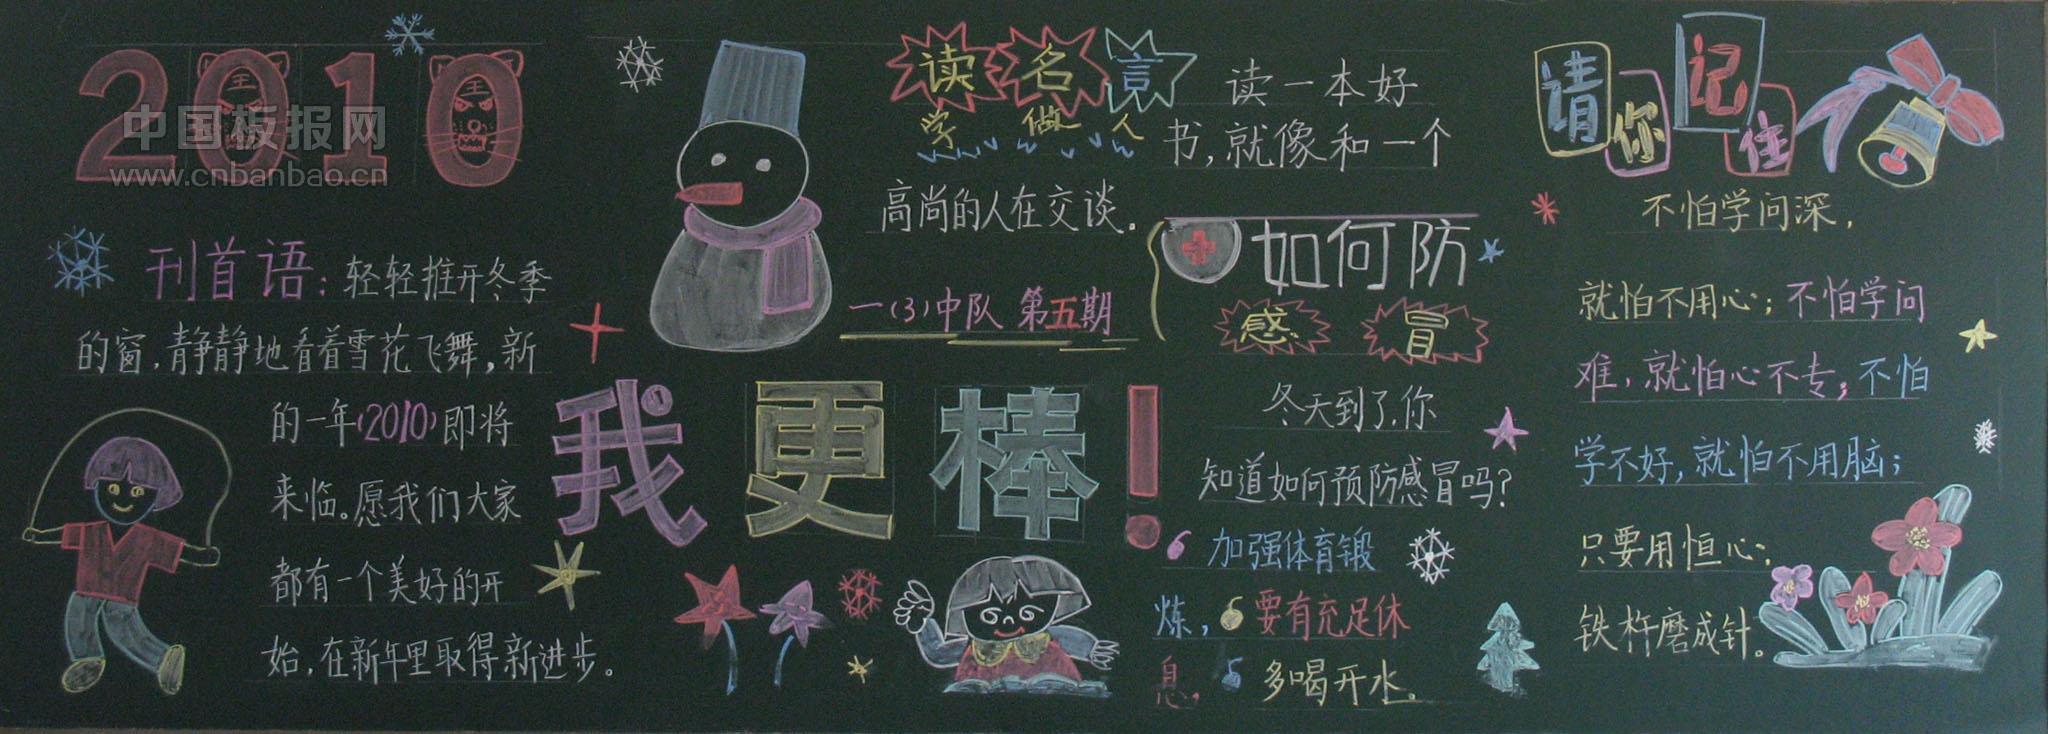 2010
中国板报网
www.cnbanbao.cn
刊首语：轻轻推开冬季
的窗，静静地看着雪花飞舞，新
的一年(2010)即将
来临。愿我们大家
都有一个美好的开
始，在新年里取得新进步。
读名言
学做人
读一本好
书，就像和一个
高尚的人在交谈。
一(3)中队 第五期
我更棒！
如何防
感冒
冬天到了，你
知道如何预防感冒吗？
加强体育锻
炼，要有充足休
息，多喝开水。
请你记住
不怕学问深，
就怕不用心；不怕学问
难，就怕心不专；不怕
学不好，就怕不用脑；
只要用恒心，
铁杵磨成针。